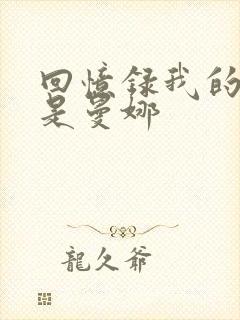 回憶録我的
是曼娜
龍久爺